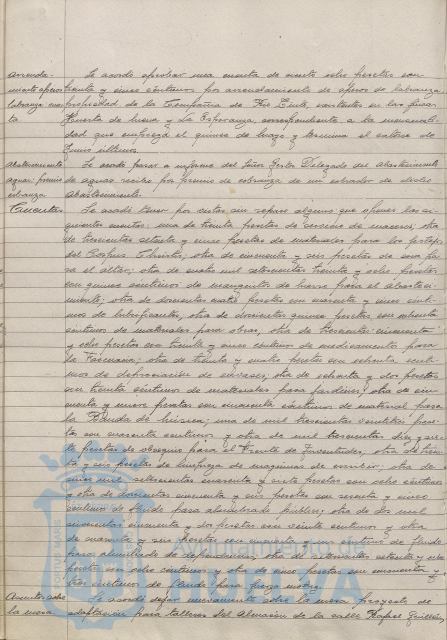 Arrenda- Se acordó aprobar una cuenta de ciento ocho pesetas con
miento aperos treinta y cinco céntimos por arrendamiento de aperos de labranza
labranza propiedad de la Compañía de existentes en las fincas
Huerta de y La Esperanza, correspondiente a la mensuali-
dad que empezó el quince de mayo y termina el catorce de
Junio último.
Abastecimiento Se acordó pasar a informe del Señor Gestor Delegado del abastecimiento
aguas: premio de aguas recibo por premio de cobranza de un cobrador de dicho
cobranza abastecimiento.
Cuentas Se acordó tener por vistas sin reparo alguno que oponer las si-
guientes cuentas: una de treinta pesetas de servicio de otra
de trescientas setenta y cinco pesetas de materiales para los festejos
del Corpus Christi, otra de cincuenta y seis pesetas de una
el altar; otra de cuatro mil setecientas treinta y ocho pesetas
con quince céntimos de manguitos de hierro para el abasteci-
miento; otra de doscientas cuatro pesetas con cuarenta y cinco cénti-
mos de lubrificantes, otra de doscientas quince pesetas con ochenta
céntimos de materiales para obras, otra de trescientas cincuenta
y ocho pesetas con treinta y cinco céntimos de medicamentos para
la otra de treinta y cuatro pesetas con ochenta cénti-
mos de de envases; otra de ochenta y dos pesetas
con treinta céntimos de materiales para jardines; otra de cin-
cuenta y nueve pesetas con cincuenta céntimos de material para
la Banda de música; una de mil trescientas veintitres pese-
tas con cincuenta céntimos y otra de mil trescientas
pesetas de obsequios para el Frente de Juventudes, otra de trein-
ta y seis pesetas de limpieza de maquinas de escribir; otra de
cinco mil setecientas cuarenta y siete pesetas con ocho céntimos
y otra de doscientas cincuenta y seis pesetas con sesenta y cinco
céntimos de fluido para alumbrado público, otra de dos mil
cincuenta y dos pesetas con veinte céntimos y otra
de cuarenta y seis pesetas con cuarenta y un céntimos de fluido
para alumbrado de dependencias, otra de setecientas setenta y
pesetas con ocho céntimos y otra de cinco pesetas con cincuenta y
tres céntimos de fluido para fuerza motriz.
Asuntos sobre Se acordó dejar nuevamente sobre la mesa proyecto de
la mesa adaptación para talleres del Almacén de la calle Rafael